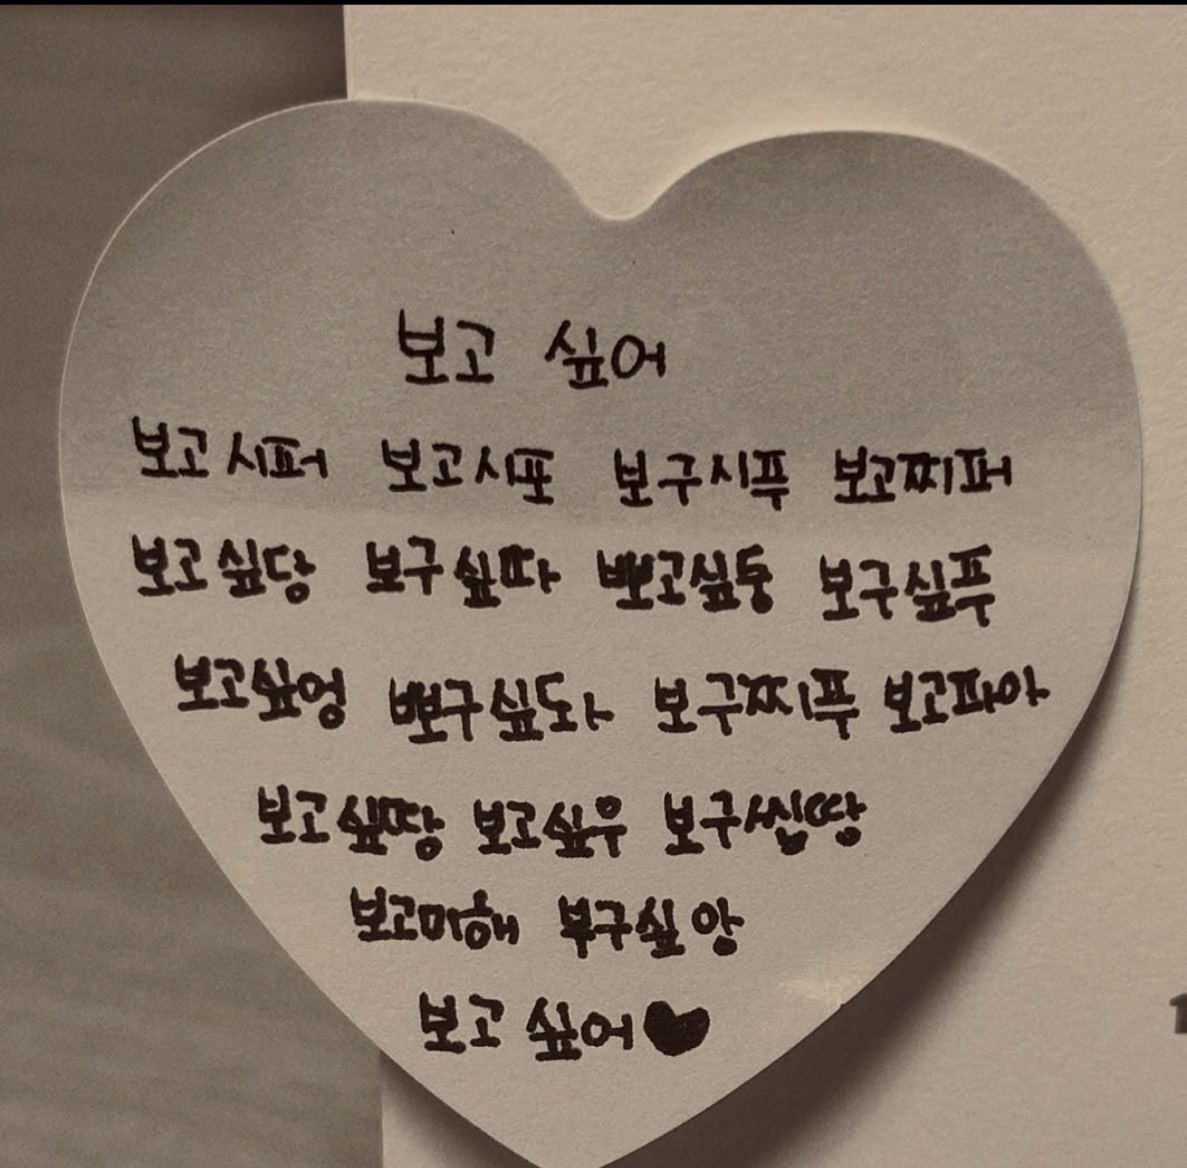 보고 싶어
보고시퍼 보고시포 보구시푸 보고찌퍼
보고싶당 보구싶따 뽀고싶둥 보구싶푸
보고싶엉 뽀구싶도아 보구찌푸 보고파아
보고싶땅 보고싶우 보구씹땅
보고미해 부구싶앙
보고싶어